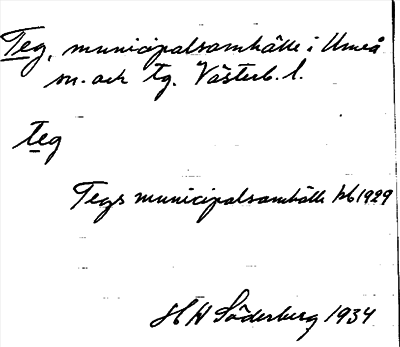 Teg, municipalsamhälle i Umeå
sn. och tg. Västerb. l.
teg
Tegs municipalsamhälle 1929
H H Söderberg 1934